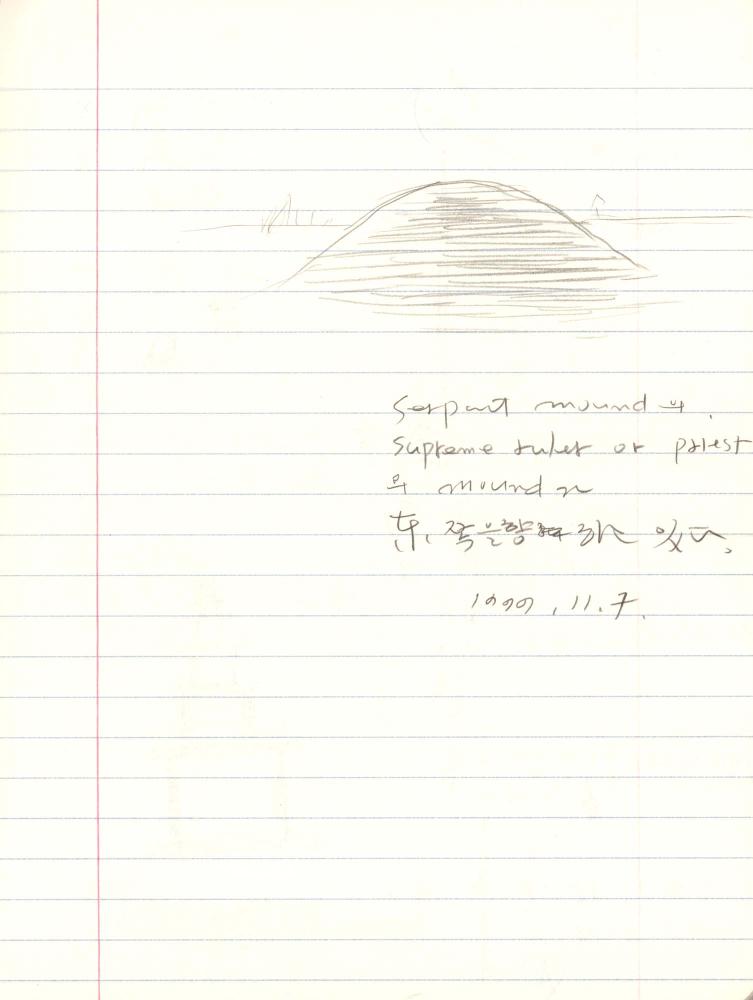 Serpant mound의.
Supreme ruler or priest
의 mound는
東, 쪽을향 하고 있다.
1999, 11. 7.